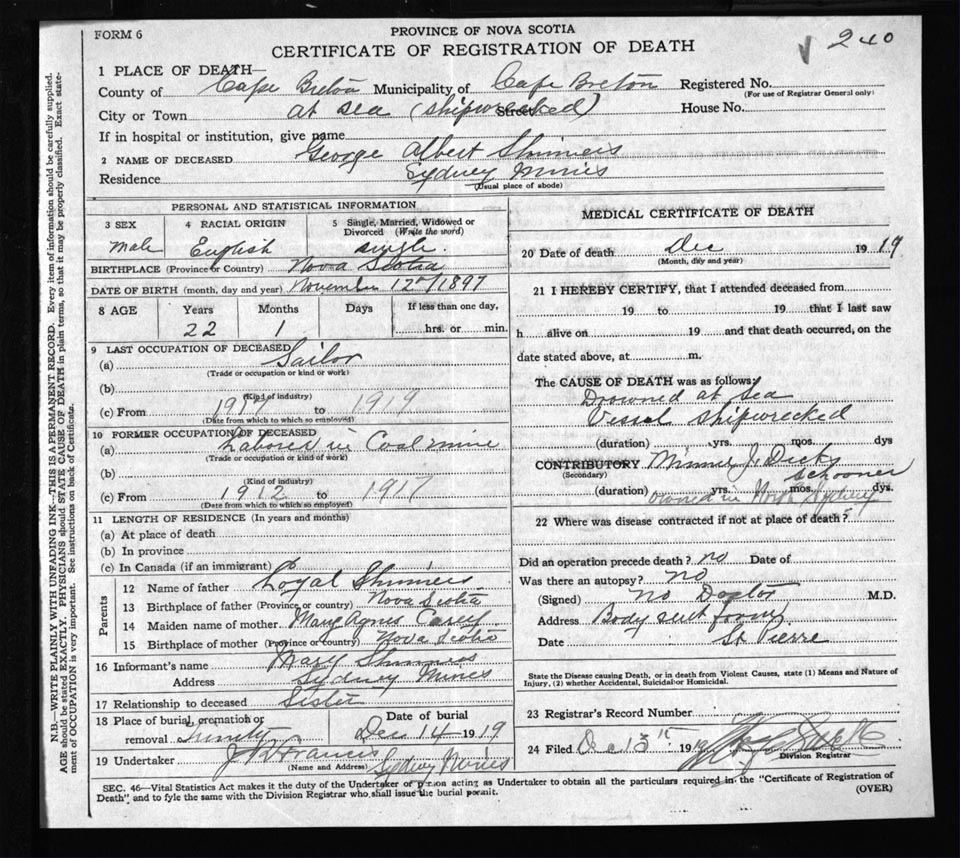 FORM 6
PROVINCE OF NOVA SCOTIA
CERTIFICATE OF REGISTRATION OF DEATH
240
1 PLACE OF DEATH—
County of Cape Breton Municipality of Cape Breton Registered No.
(For use of Registrar General only)
City or Town at sea (shipwrecked) Street House No.
If in hospital or institution, give name
2 NAME OF DECEASED George Albert
Residence Sydney Mines
(Usual place of abode)
PERSONAL AND STATISTICAL INFORMATION
3 SEX male
4 RACIAL ORIGIN English
5 Single, Married, Widowed or Divorced (Write the word) single.
BIRTHPLACE (Province or Country) Nova Scotia
DATE OF BIRTH (month, day and year) November 12th/1897
8 AGE Years Months Days If less than one day,
22 1 hrs. or min.
9 LAST OCCUPATION OF DECEASED
(a) Sailor
(Trade or occupation or kind or work)
(b)
(Kind of industry)
(c) From 1917 to 1919
(Date from which to which so employed)
10 FORMER OCCUPATION OF DECEASED
(a) Laborer in Coal mine
(Trade or occupation or kind or work)
(b)
(Kind of industry)
(c) From 1912 to 1917
(Date from which to which so employed)
11 LENGTH OF RESIDENCE (In years and months)
(a) At place of death
(b) In province
(c) In Canada (if an immigrant)
Parents
12 Name of father Loyal
13 Birthplace of father (Province or country) Nova Scotia
14 Maiden name of mother Mary Agnes Carey
15 Birthplace of mother (Province or country) Nova Scotia
16 Informant's name Mary
Address Sydney Mines
17 Relationship to deceased Sister
18 Place of burial, cremation or removal Trinity
Date of burial Dec 14 1919
19 Undertaker Francis Sydney Mines
(Name and Address)
MEDICAL CERTIFICATE OF DEATH
20 Date of death Dec 1919
(Month, day and year)
21 I HEREBY CERTIFY, that I attended deceased from
19 to 19 that I last saw
h alive on 19 and that death occurred, on the
date stated above, at m.
The CAUSE OF DEATH was as follows:
Drowned at sea
Vessel shipwrecked
(duration) yrs. mos. dys
CONTRIBUTORY Minnie J. Dicks
(Secondary) schooner
(duration) yrs. mos. dys.
owned in North Sydney
22 Where was disease contracted if not at place of death?
Did an operation precede death? no Date of
Was there an autopsy? no
(Signed) no Doctor M.D.
Address Body sent from
Date St Pierre
State the Disease causing Death, or in death from Violent Causes, state (1) Means and Nature of
Injury, (2) whether Accidental, Suicidal or Homicidal.
23 Registrar's Record Number
24 Filed Dec 13th 1919
Division Registrar
SEC. 46—Vital Statistics Act makes it the duty of the Undertaker or person acting as Undertaker to obtain all the particulars required in the "Certificate of Registration of
Death" and to fyle the same with the Division Registrar who shall issue the burial permit.
(OVER)
N.B.—WRITE PLAINLY WITH UNFADING INK—THIS IS A PERMANENT RECORD. Every item of information should be carefully supplied.
AGE should be stated EXACTLY. PHYSICIANS should STATE CAUSE OF DEATH in plain terms, so that it may be properly classified. Exact state-
ment of OCCUPATION is very important. See instructions on back of Certificate.